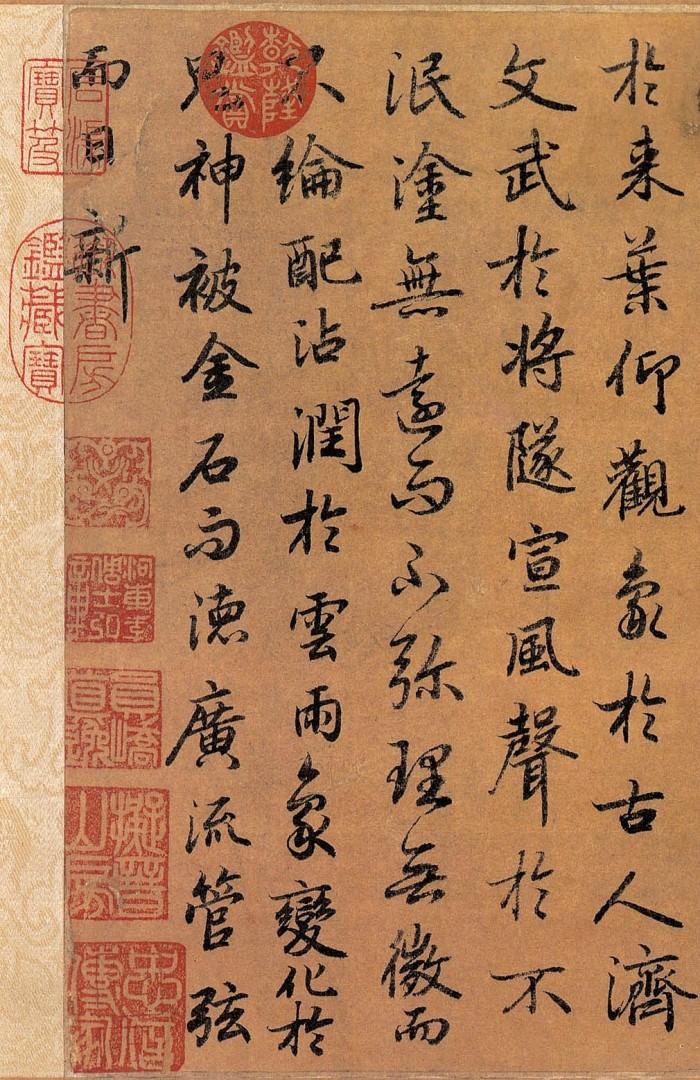 於来葉仰觀象於古人濟
文武於将隧宣風聲於不
泯塗無遠而不弥理無微而
不綸配沾潤於雲雨象變化於
鬼神被金石而徳廣流管弦
而日新
乾隆鑑賞
石渠寶笈
御書房鑑藏寶
擬晉山房